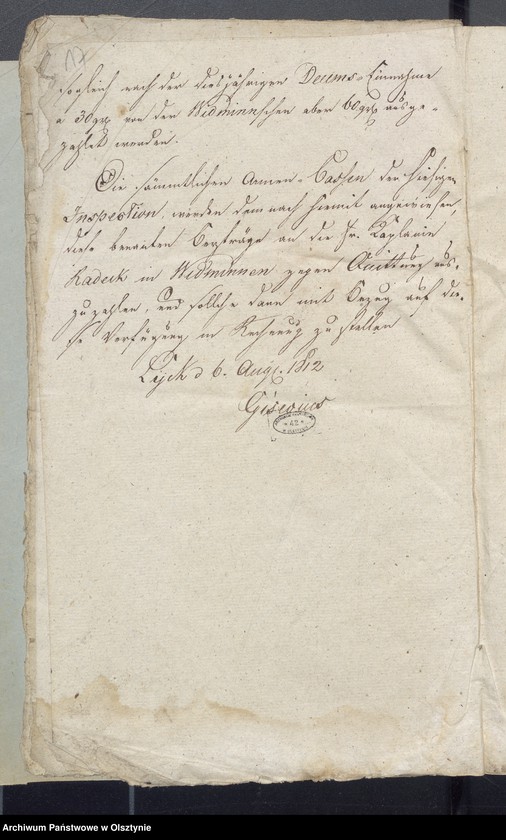 17
sogleich nach der diesjährigen Decems-Einnahme
a 30 gr von den Widminnschen aber 60 gr ausge-
zahlet werden.
Die sämmtlichen Armen-Cassen der hiesigen
Inspection werden demnach hiemit angewiesen,
diese benanten Beyträge an die Fr. Kaplanin
Radeck in Widminnen gegen Quittung aus-
zuzahlen, und solche dann mit Bezug auf die-
se Verfügung in Rechnung zu stellen
Lyck d 6. Aug. 1812
Gisevius
Archiwum Państwowe w Olsztynie